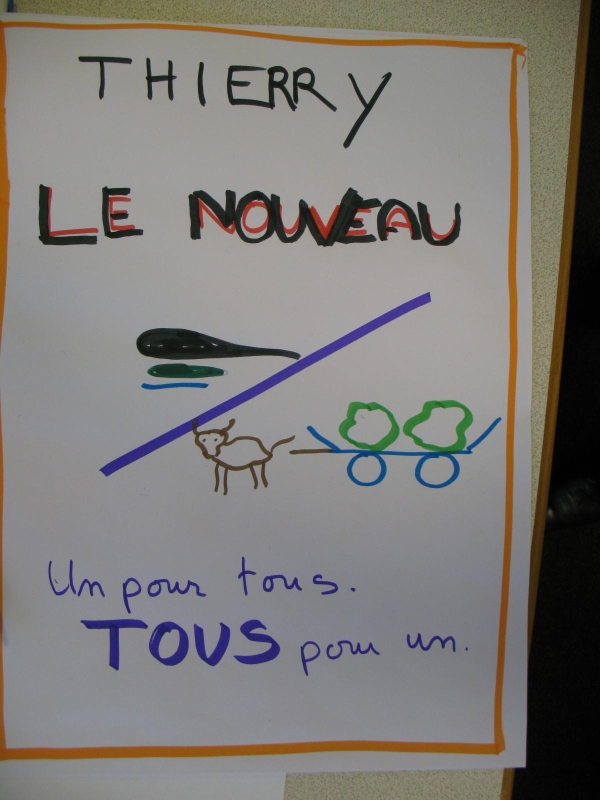 THIERRY
LE NOUVEAU
Un pour tous.
TOUS pour un.